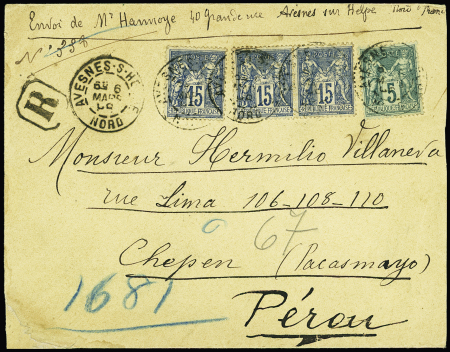 Envoi de Mr Hannoye 40 grande rue Avesnes sur Helpe Nord France
No 388
R
AVESNES-S-HELPE
6
MARS
NORD
15
15
15
5
Monsieur Hermilio Villaneva
rue Lima 106-108-110
67
Chepen (Pacasmayo)
1681
Pérou